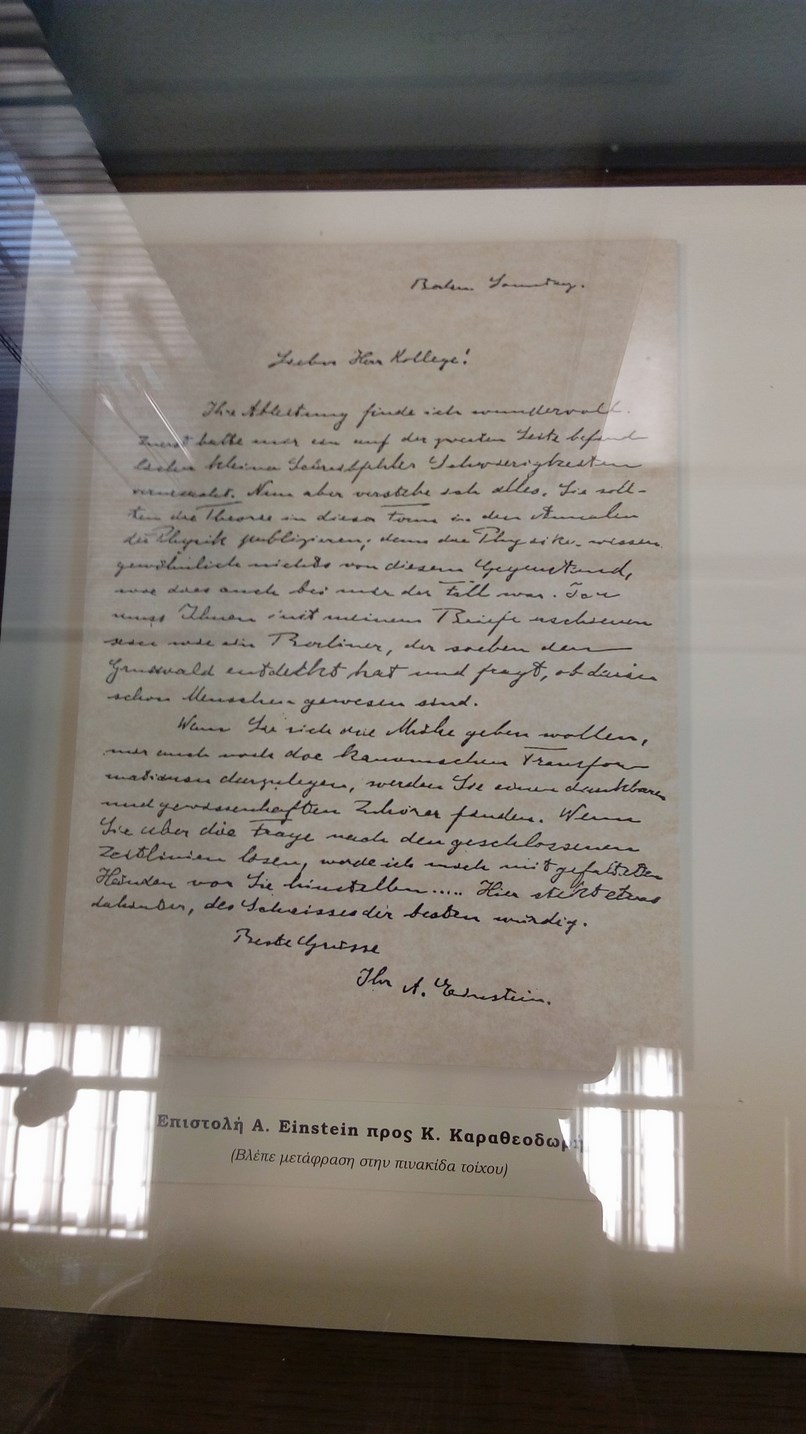 Berlin Sonntag.
Lieber Herr Kollege!
Ihre Ableitung finde ich wundervoll.
Zuerst hatte mir ein auf der zweiten Seite befind-
licher kleiner Schreibfehler Schwierigkeiten
verursacht. Nun aber verstehe ich alles. Sie soll-
ten die Theorie in dieser Form in den Annalen
der Physik publizieren; denn die Physiker wissen
gewöhnlich nichts von diesem Gegenstand,
wie dies auch bei mir der Fall war. Ich
muss Ihnen mit meinem Briefe erschienen
sein wie ein Berliner, der soeben den
Grunewald entdeckt hat und fragt, ob darin
schon Menschen gewesen sind.
Wenn Sie sich die Mühe geben wollen,
mir auch noch die kanonischen Transfor-
mationen darzulegen, werden Sie einen dankbaren
und gewissenhaften Zuhörer finden. Wenn
Sie aber die Frage nach den geschlossenen
Zeitlinien lösen, werde ich mich mit gefalteten
Händen vor Sie hinstellen..... Hier steckt etwas
dahinter, des Schweisses der Besten würdig.
Beste Grüsse
Ihr A. Einstein.
Επιστολή A. Einstein προς Κ. Καραθεοδωρή
(Βλέπε μετάφραση στην πινακίδα τοίχου)